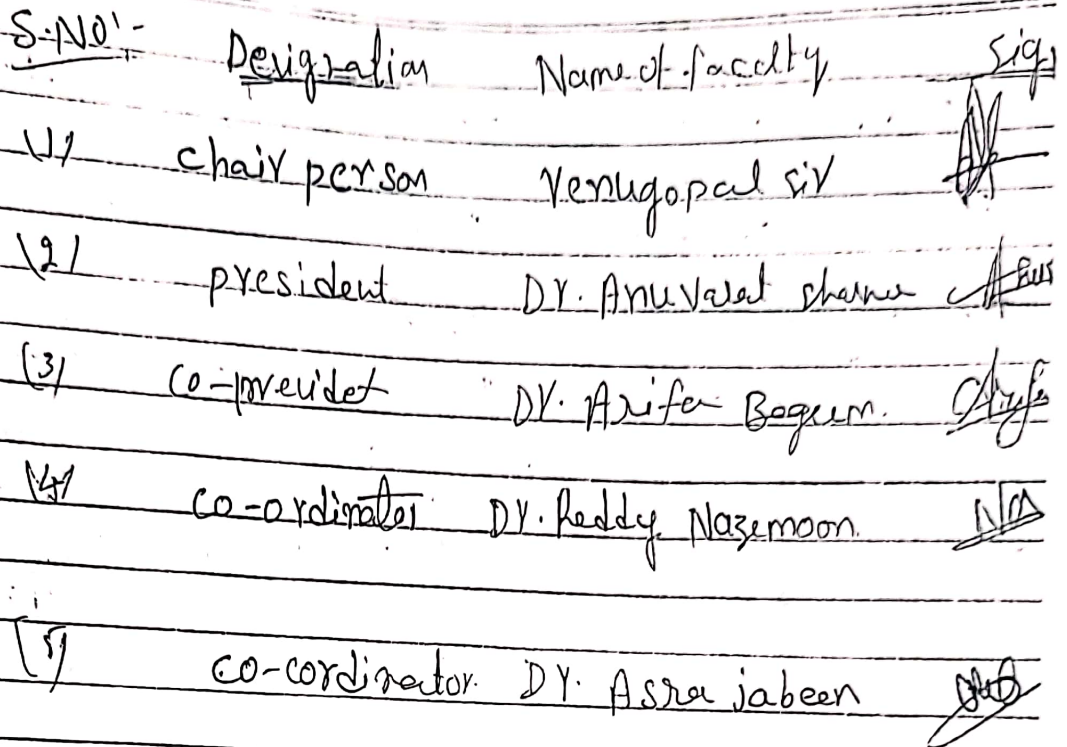 S.NO:- Designation Name of faculty Sign
(1) chair person Venugopal sir
(2) president DY. Anuvalat sharma
(3) co-president DY. Arifa Begum.
(4) co-ordinator DY. Reddy Nazemoon.
(5) co-cordinator. DY. Asra jabeen